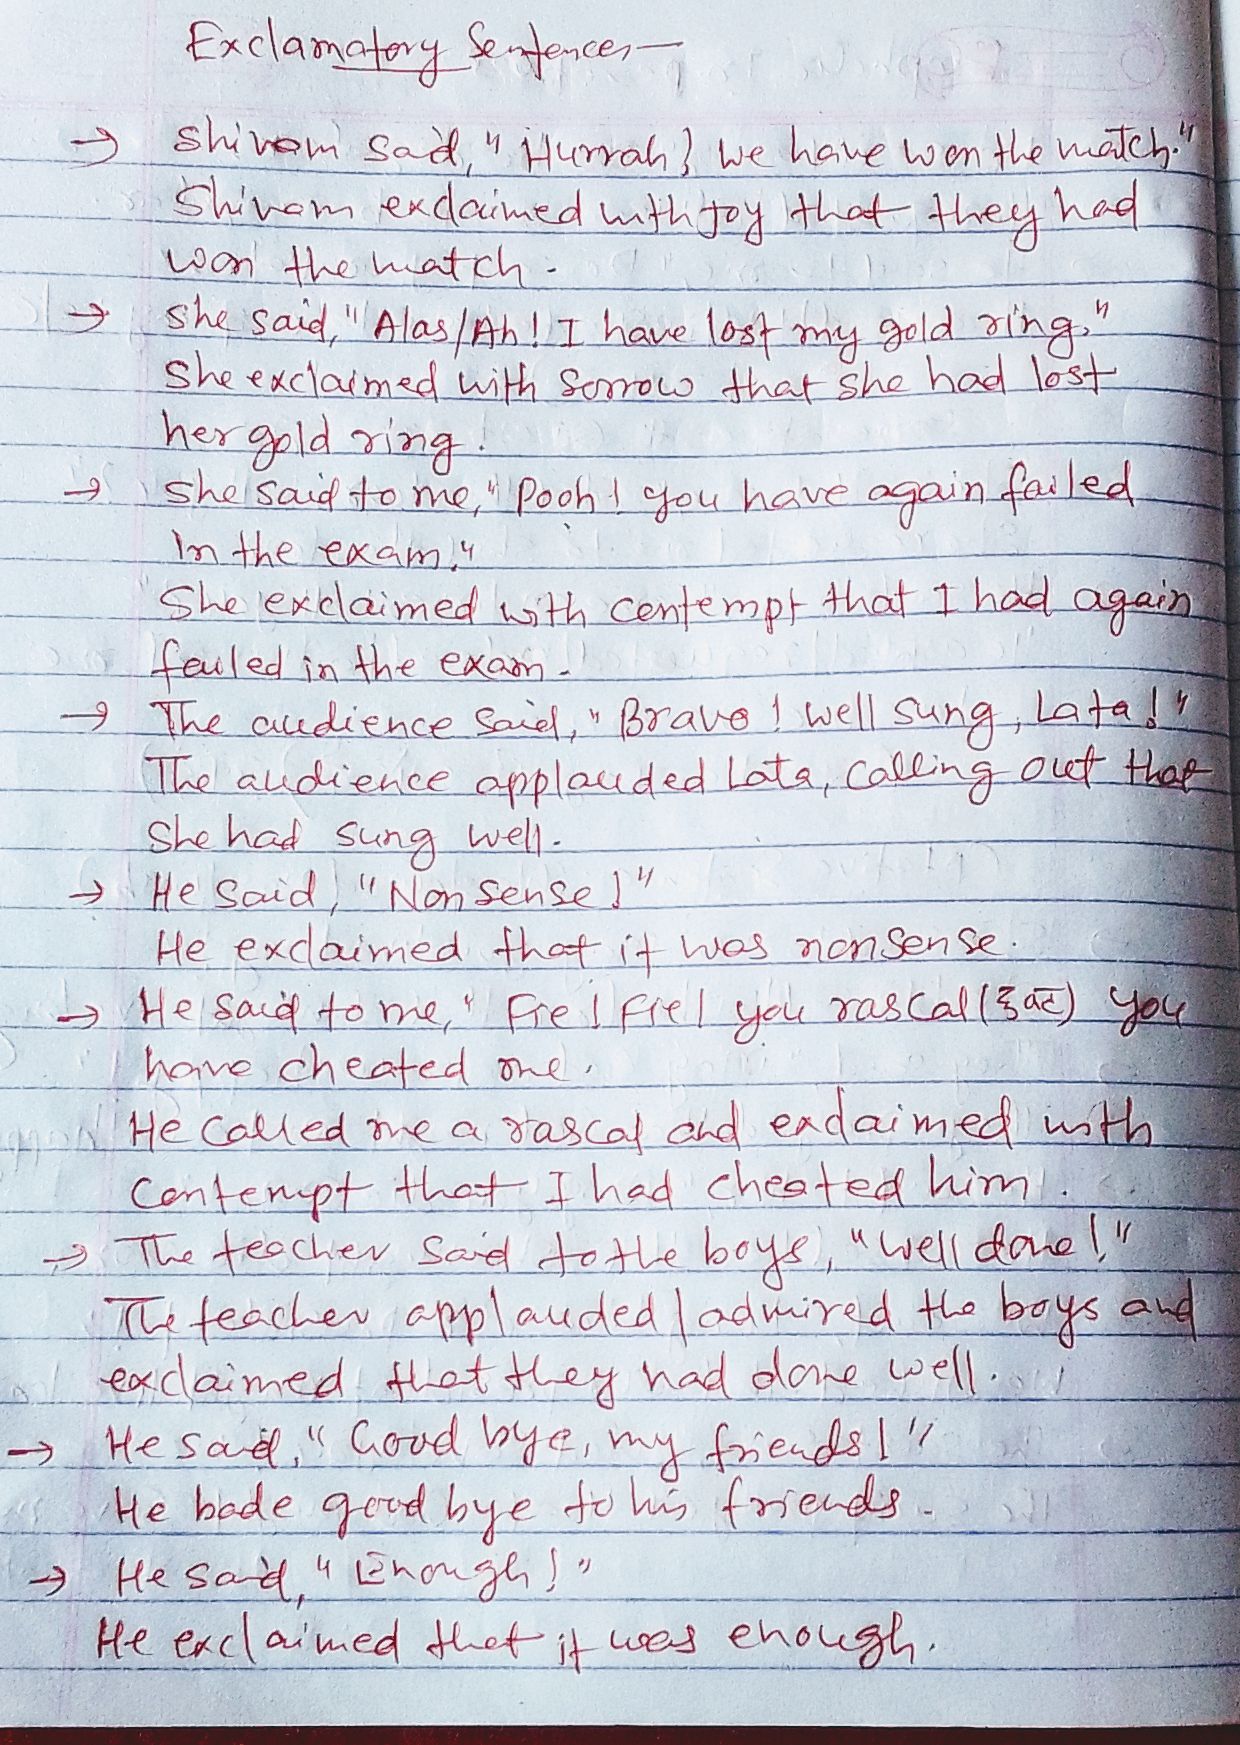 Exclamatory Sentences—
→ Shivam said, "Hurrah! We have won the match."
Shivam exclaimed with joy that they had
won the match.
→ She said, "Alas/Ah! I have lost my gold ring."
She exclaimed with sorrow that she had lost
her gold ring.
→ She said to me, "Pooh! you have again failed
in the exam."
She exclaimed with contempt that I had again
failed in the exam.
→ The audience said, "Bravo! well sung, Lata!"
The audience applauded Lata, calling out that
she had sung well.
→ He said, "Nonsense!"
He exclaimed that it was nonsense.
→ He said to me, "Fie! Fie! you rascal you
have cheated me.
He called me a rascal and exclaimed with
contempt that I had cheated him.
→ The teacher said to the boys, "Well done!"
The teacher applauded/admired the boys and
exclaimed that they had done well.
→ He said, "Good bye, my friends!"
He bade good bye to his friends.
→ He said, "Enough!"
He exclaimed that it was enough.